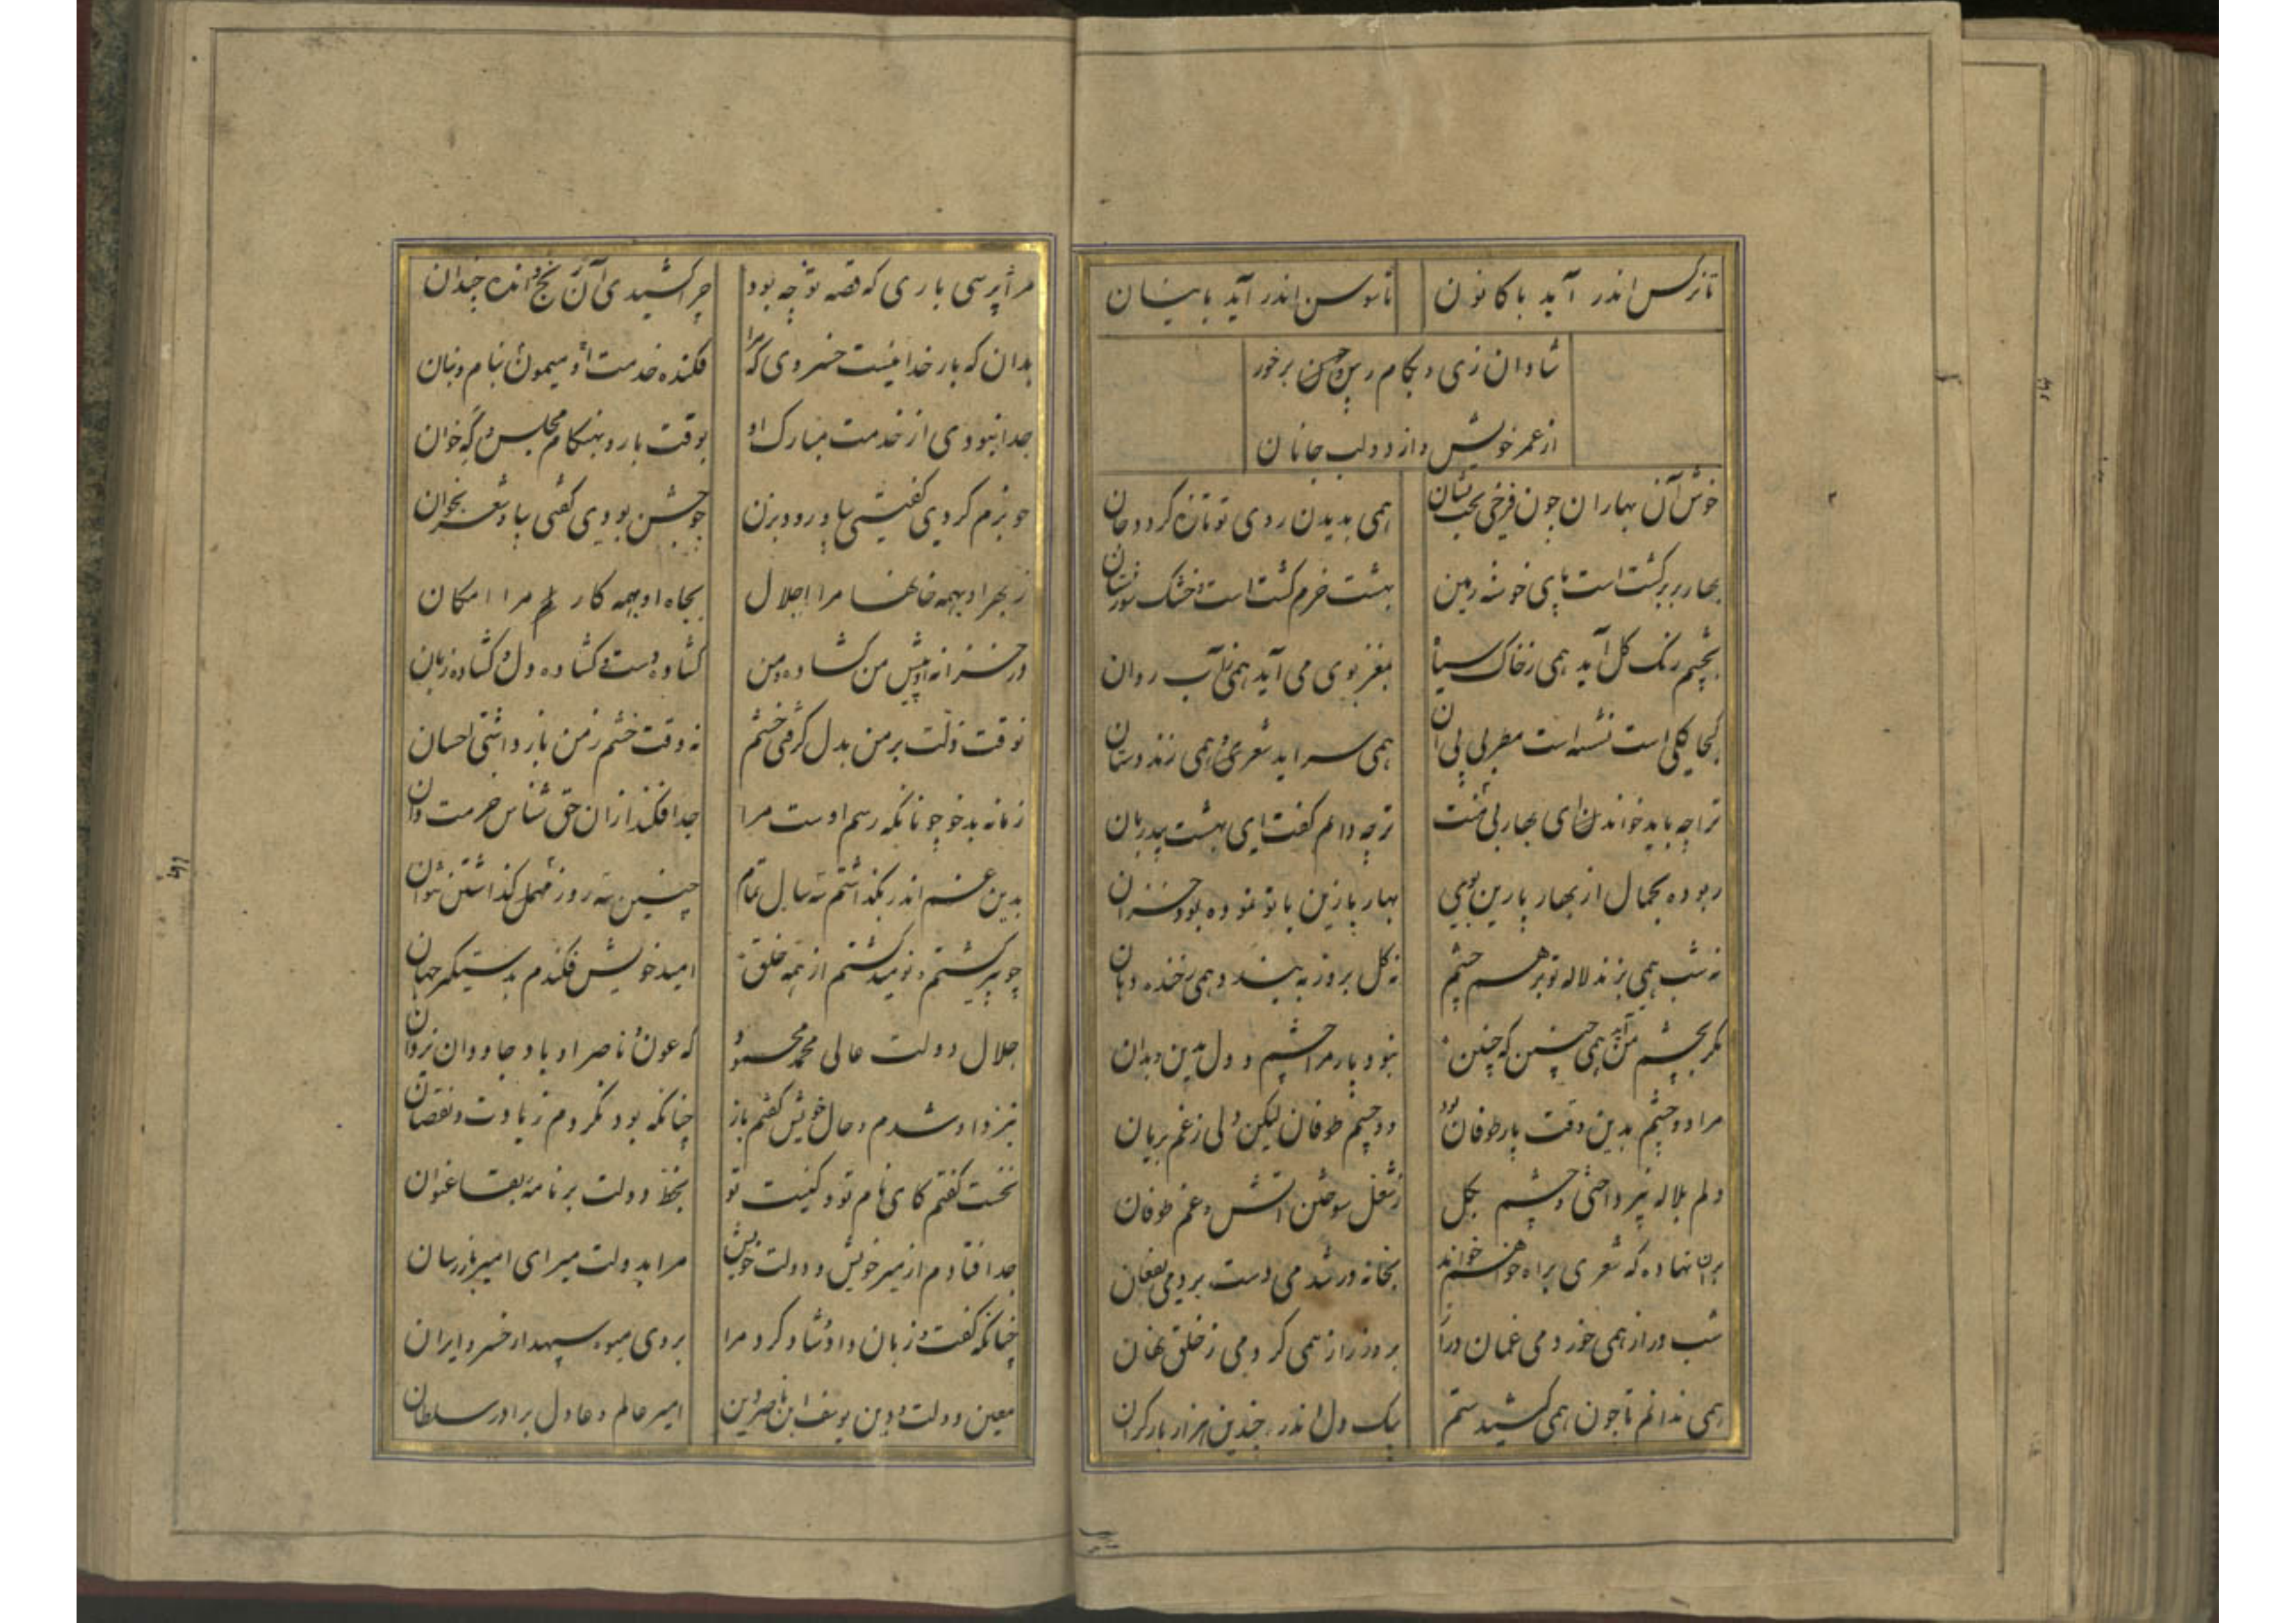 تا نرگس اندر آید با کانون تا سوسن اندر آید با نیسان
شادان زی و بکام رس و حسن برخور
از عمر خویش و از دو لب جانان
خوش آن بهاران چون فرخی همی بدیدن روی تو تازه کردد جان
بهار بر کشت است خوشه زمین بهشت خرم کشت است خشک
بچشم رنک کل آید همی ز خاک سیاه بمغز بوی می آید همی ز آب روان
کجا کلی است نشسته است مطربی بی ان همی سراید شعری و همی زند دستان
ترا چه باید خواندن ای بهار بی منت ترا چه دانم کفت ای بهشت بی دربان
ربوده بجمال از بهار پارین بوی بهار پارین با تو نموده بود خزان
نه شب همی بزند لاله تو بر هم چشم نه کل بروز به بندد همی ز خنده دهان
مکر بچشم من آید همی چنین که چنین نبود پار مرا چشم و دل بدین و بدان
مرا دو چشم بدین وقت پار طوفان بود دو چشم طوفان لیکن دلی ز غم بریان
دلم بلاله نپرداختی و چشم بکل ز شغل سوختن آتش و غم طوفان
بران نهاده که شعری براه خواهم خواند بخانه در شدمی دست بردمی بفغان
شب دراز همی خوردمی غمان دراز بروز راز همی کردمی ز خلق نهان
همی ندانم تا چون همی کشید ستم بیک دل اندر چندین هزار بار کران
مرا پرسی باری که قصه تو چه بود چرا کشیدی آن رنج و انده چندان
بدان که بار خدا نیست خسروی که مرا فکنده خدمت او میمون بنام و بنان
جدا نبودی از خدمت مبارک او بوقت بار و بهنکام مجلس و که خوان
چو بزم کردی کفتی بیا و رود بزن چو جشن بودی کفتی بیا و شعر بخوان
ز بهر او بهمه خانها مرا اجلال بجاه او بهمه کار مرا امکان
در خزانه او پیش من کشاده و من کشاده دست و کشاده دل و کشاده زبان
نه وقت زلت بر من بدل کرفتی خشم نه وقت خشم ز من باز داشتی احسان
زمانه بد خو چونانکه رسم اوست مرا جدا فکند از ان حق شناس حرمت دان
بدین غم اندر بکذاشتم سه سال تمام چنین سه روز مهمل کذاشتن نتوان
چو پیر کشتم و نومید کشتم از همه خلق امید خویش فکندم بدستکیر جهان
جلال دولت عالی محمد محمود که عون و ناصر او باد جاودان یزدان
بنزد او شدم و حال خویش کفتم باز چنانکه بود نکردم زیادت و نقصان
نخست کفتم کای نام تو و کنیت تو بخط دولت بر نامه بقا عنوان
جدا فتادم از میر خویش و دولت خویش مرا بدولت میر ای امیر باز رسان
چنانکه کفت زبان داد و شاد کرد مرا بروی میوه سپهدار خسرو ایران
معین دولت و دین یوسف ابن ناصر دین امیر عالم و عادل برادر سلطان